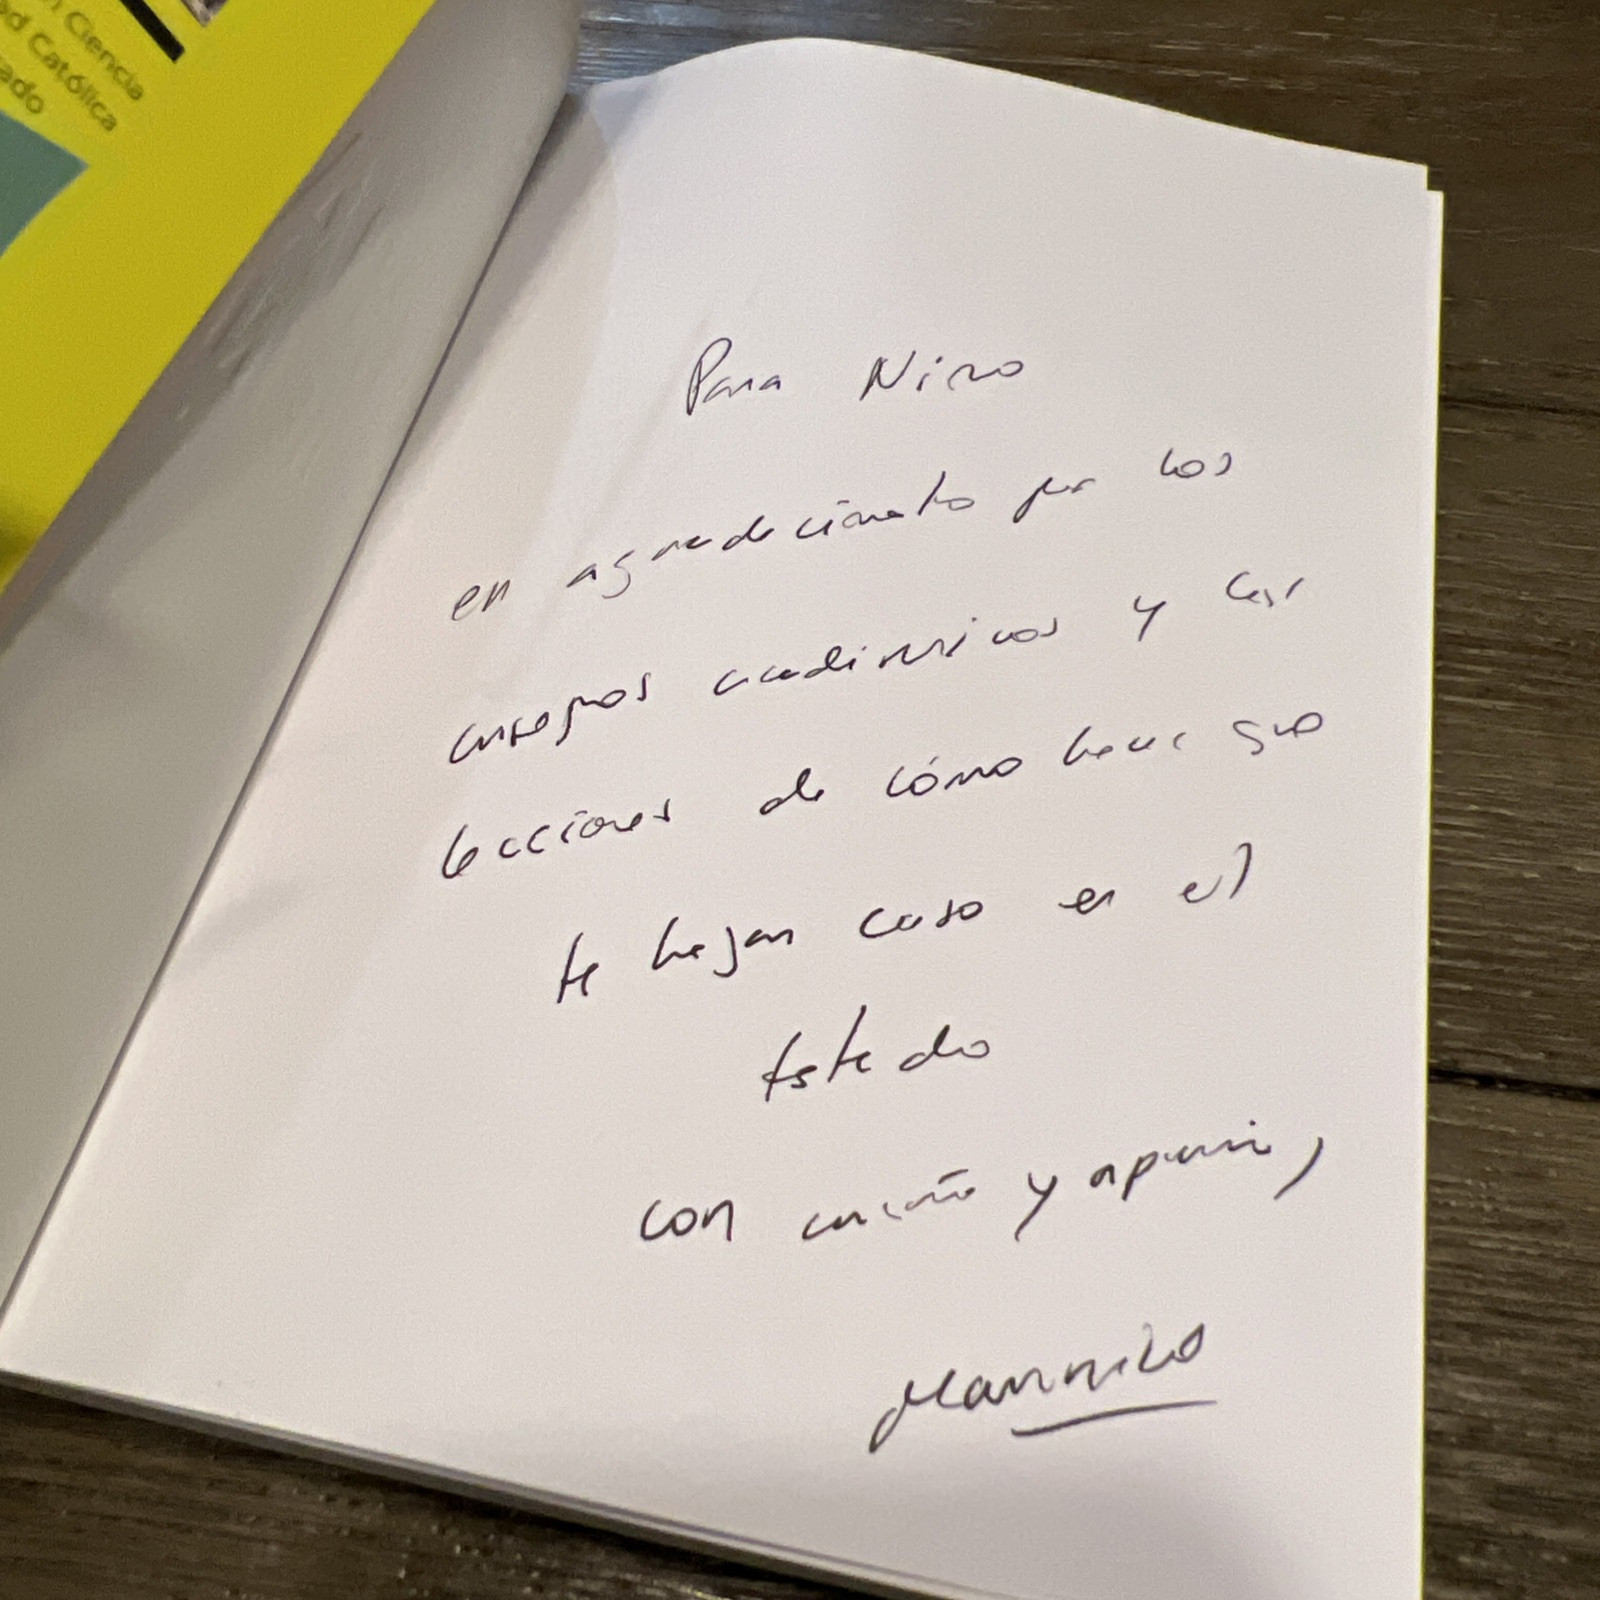 n Ciencia
ad Católica
tado
Para Nino
en agradecimiento por los
consejos académicos y las
lecciones de cómo hacer que
te hagan caso en el
Estado
con cariño y aprecio,